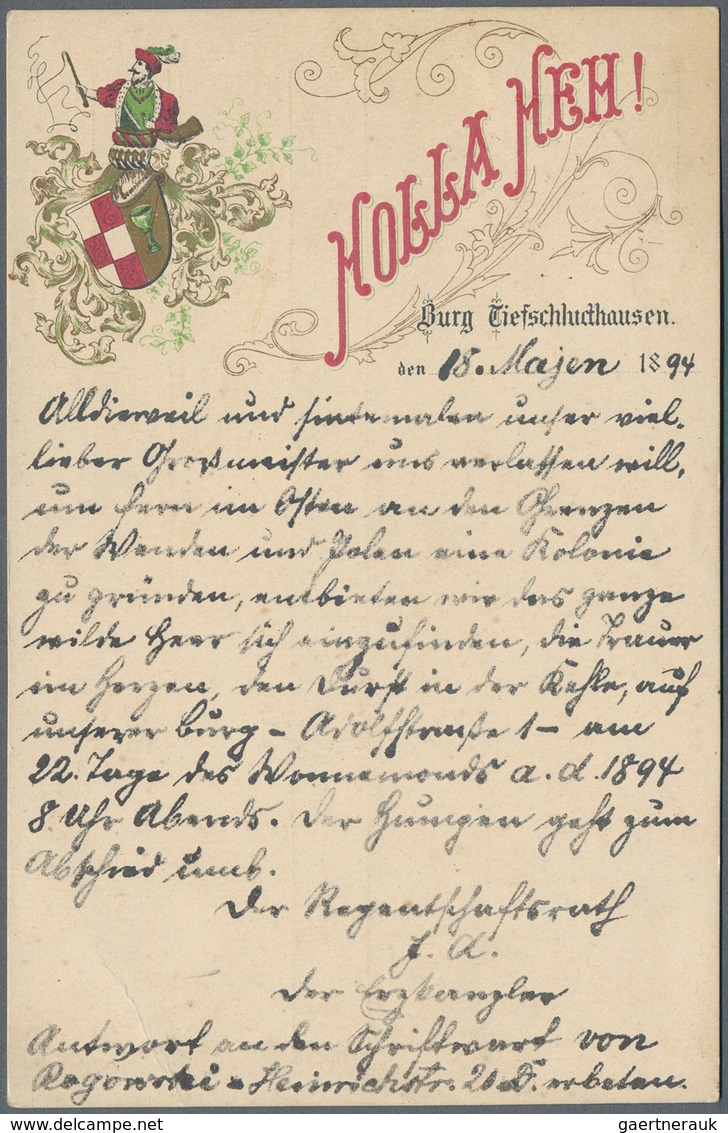 HOLLA HEH!
Burg Tiefschluchthausen.
den 18. Majen 1894
Alldierweil und sintemalen unser viel-
lieber Großmeister uns verlassen will,
um fern im Osten an den Grenzen
der Wenden und Polen eine Kolonie
zu gründen, entbieten wir das ganze
wilde Heer sich einzufinden, die Trauer
im Herzen, den Durst in der Kehle, auf
unserer Burg - Adolfstraße 1 - am
22. Tage des Wonnemonds a. d. 1894
8 Uhr Abends. Der Humpen geht zum
Abschied umb.
Der Regentschaftsrath
J. A.
der Erzkanzler
Antwort an den Schriftwart von
Rogowski - Heinrichstr. 20 erbeten.
gaertnerauk